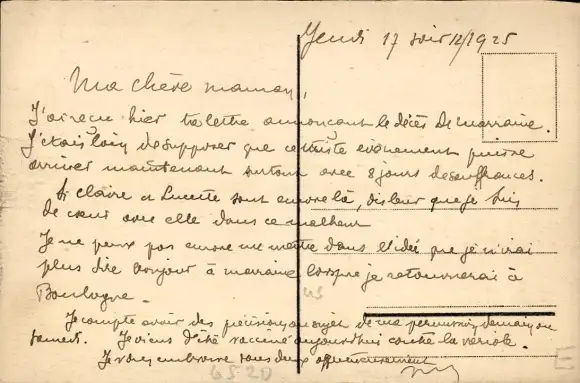 Jeudi 17 soir 12/1925
Ma chère maman,
J'ai reçu hier ta lettre annonçant le décès de marraine.
J'étais loin de supposer que ce triste évènement puisse
arriver maintenant surtout avec 8 jours de souffrances.
Si Claire et Lucette sont encore là, dis leur que je suis
de cœur avec elle dans ce malheur
Je ne peux pas encore me mettre dans l'idée que je n'irai
plus dire bonjour à marraine lorsque je retournerai à
Boulogne.
Je compte avoir des précisions au sujet de ma permission demain ou
samedi. Je viens d'être vacciné aujourd'hui contre la variole.
Je vous embrasse tous deux affectueusement
6520
E